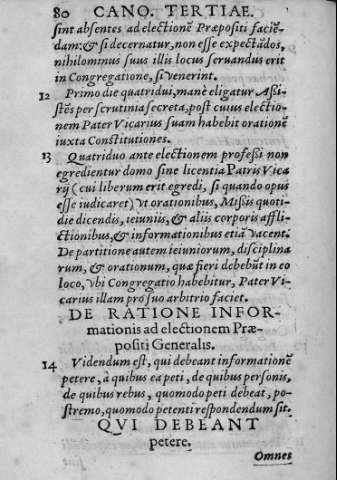 80 CANO. TERTIAE.
sint absentes ad electionē Præpositi faciē-
dam: & si decernatur, non esse expectādos,
nihilominus suus illis locus seruandus erit
in Congregatione, si venerint.
12 Primo die quatridui, manè eligatur Aßi-
stēs per scrutinia secreta, post cuius electio-
nem Pater Vicarius suam habebit orationē
iuxta Constitutiones.
13 Quatriduo ante electionem professi non
egredientur domo sine licentia Patris Vica
rij (cui liberum erit egredi, si quando opus
esse iudicaret) vt orationibus, Mißis quoti-
die dicendis, ieiuniis, & aliis corporis affli-
ctionibus, & informationibus etiā vacent.
De partitione autem ieiuniorum, disciplina
rum, & orationum, quæ fieri debebūt in eo
loco, vbi Congregatio habebitur, Pater Vi-
carius illam pro suo arbitrio faciet.
DE RATIONE INFOR-
mationis ad electionem Præ-
positi Generalis.
14 Videndum est, qui debeant informationē
petere, à quibus ea peti, de quibus personis,
de quibus rebus, quomodo peti debeat, po-
stremo, quomodo petenti respondendum sit.
QVI DEBEANT
petere.
Omnes